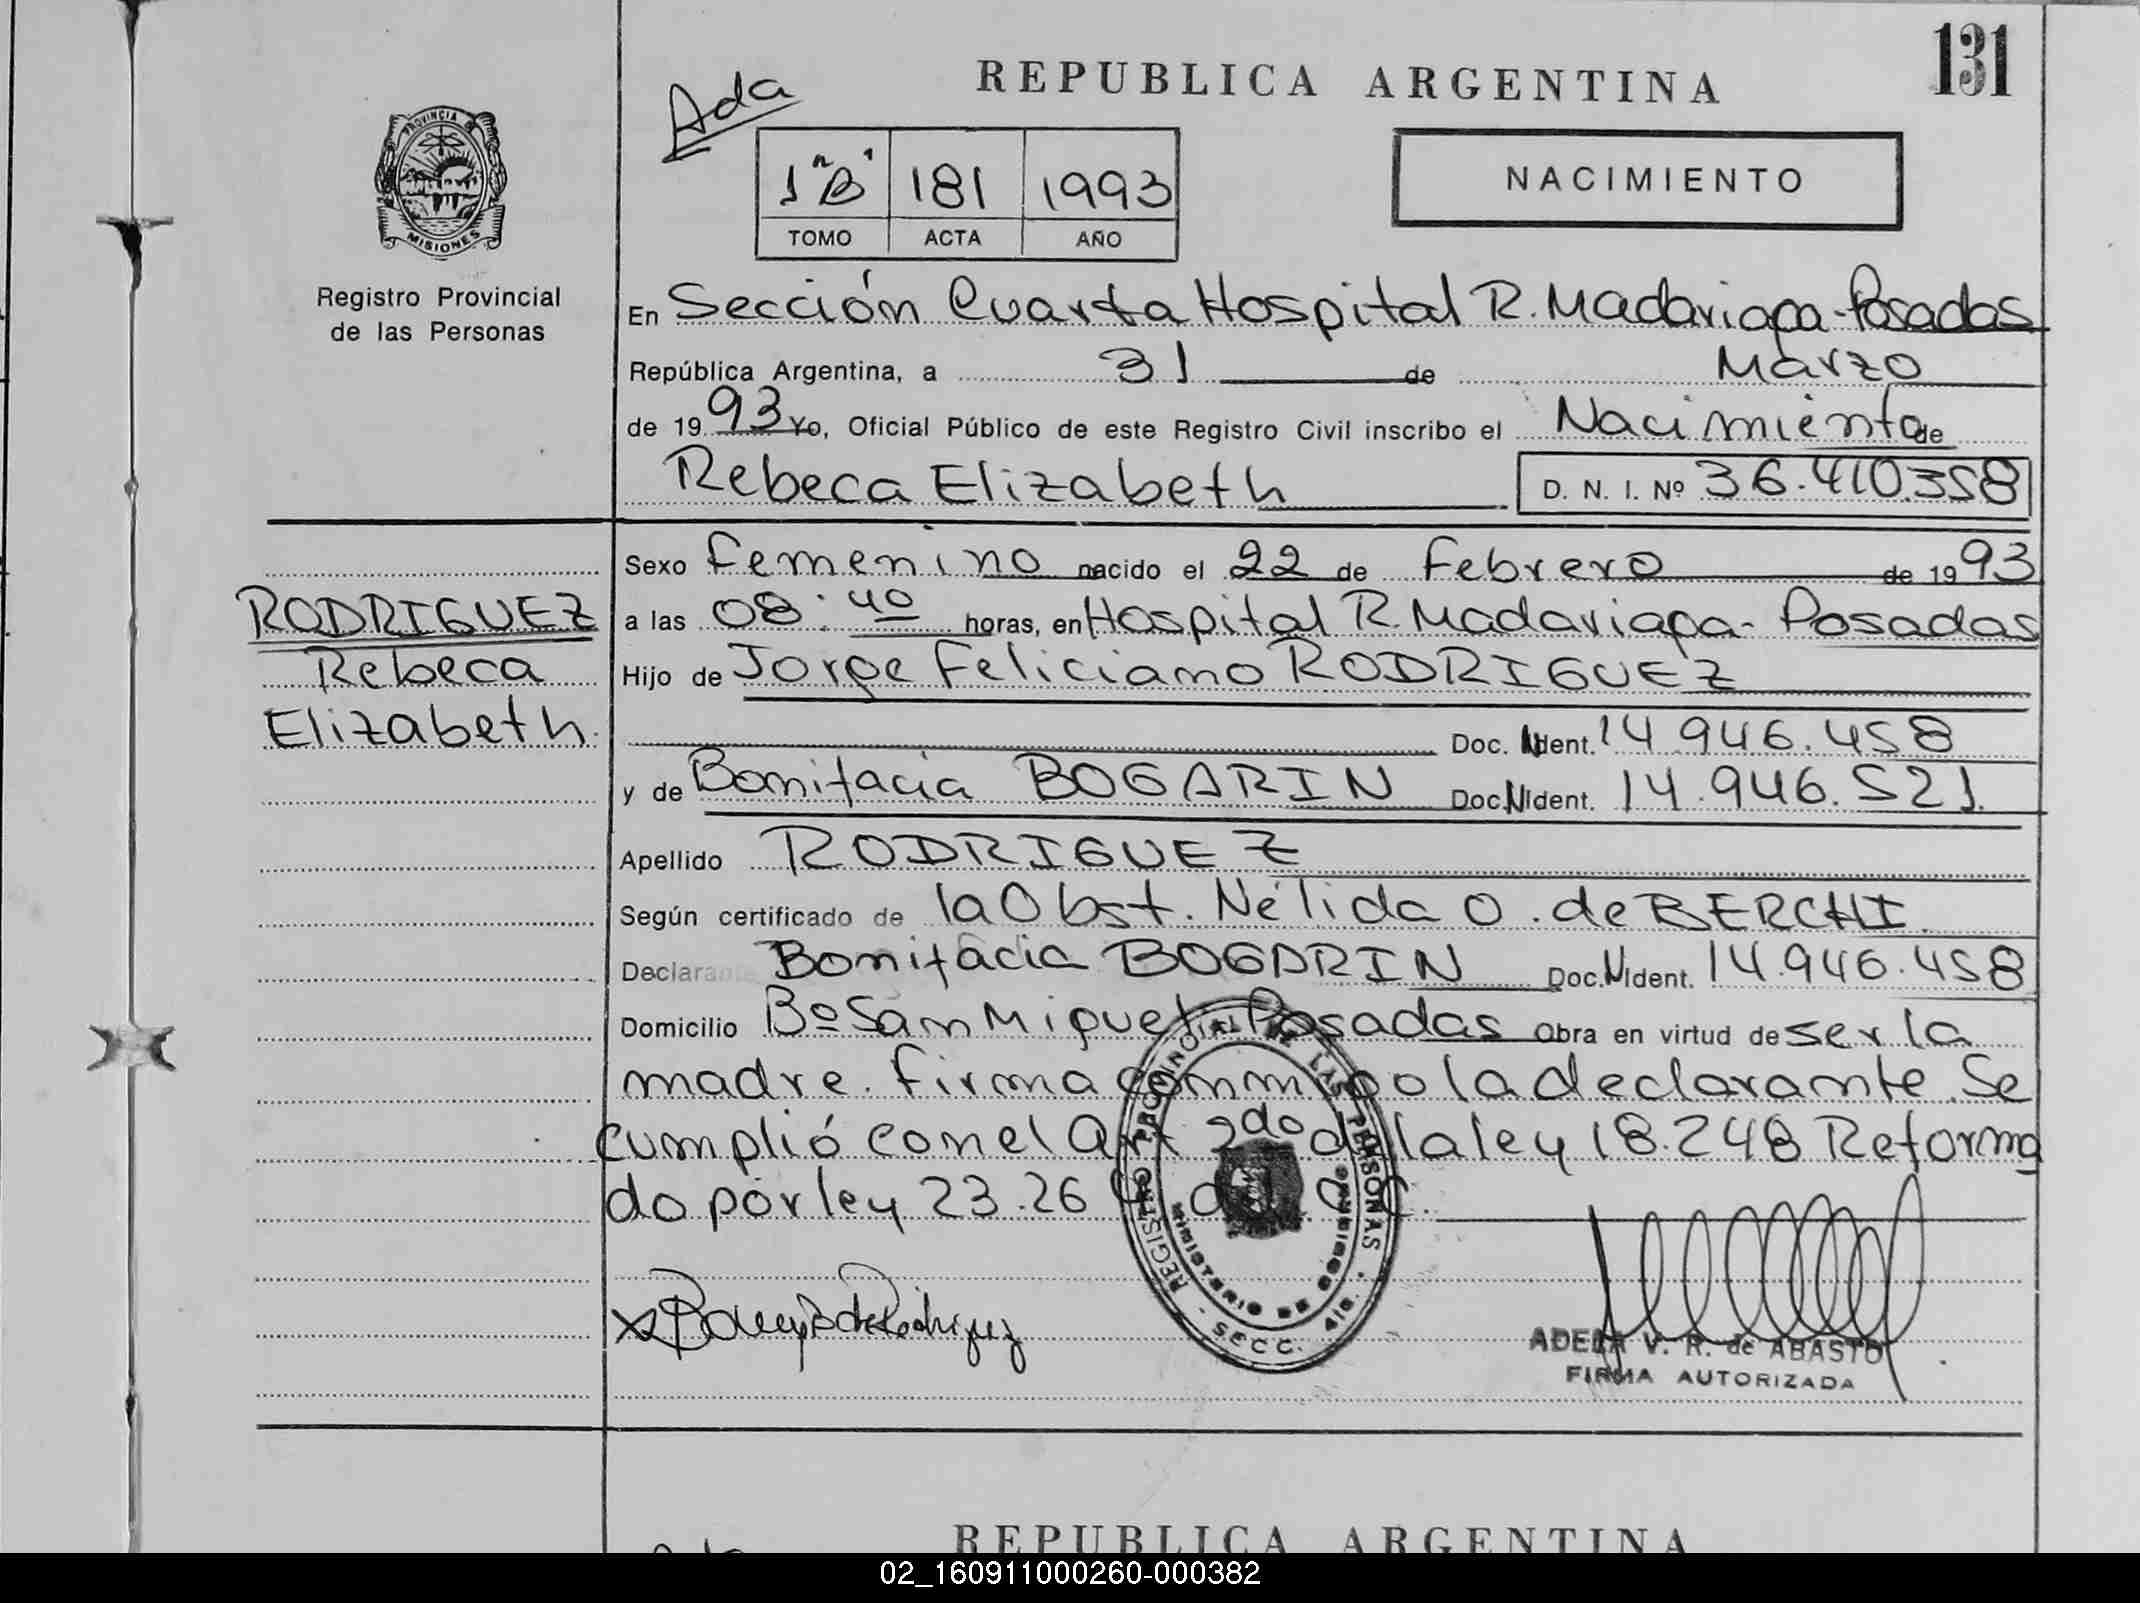 131
REPUBLICA ARGENTINA
Ada
PROVINCIA DE
MISIONES
1 "B" 181 1993
TOMO ACTA AÑO
NACIMIENTO
Registro Provincial
de las Personas
En Sección Cuarta Hospital R. Madariaga - Posadas
República Argentina, a 31 de Marzo
de 1993 Yo, Oficial Público de este Registro Civil inscribo el Nacimiento de
Rebeca Elizabeth D. N. I. Nº 36.410.358
Sexo Femenino nacido el 22 de Febrero de 1993
RODRIGUEZ
Rebeca
Elizabeth.
a las 08:40 horas, en Hospital R. Madariaga - Posadas
Hijo de Jorge Feliciano RODRIGUEZ
Doc. Ident. 14.946.458
y de Bonifacia BOGARIN Doc. Ident. 14.946.521.
Apellido RODRIGUEZ
Según certificado de la Obst. Nélida O. de BERCHI.
Declarante Bonifacia BOGARIN Doc. Ident. 14.946.458
Domicilio Bº San Miguel - Posadas Obra en virtud de ser la
madre. Firma conmigo la declarante. Se
cumplió con el Art 2do de la ley 18.248 Reforma
do por ley 23.26
REGISTRO PROVINCIAL DE LAS PERSONAS
MINISTERIO DE GOBIERNO
SECC. 4ta.
ADELA V. R. de ABASTO
FIRMA AUTORIZADA
REPUBLICA ARGENTINA
02_160911000260-000382